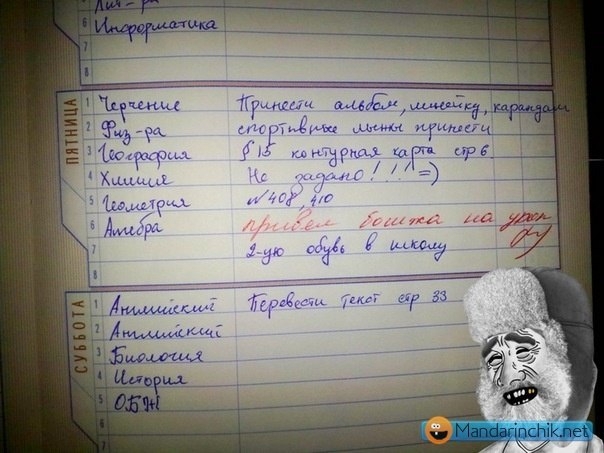 Лит-ра
6 Информатика
7
8
ПЯТНИЦА
1 Черчение Принести альбом, линейку, карандаш
2 Физ-ра спортивные лыжи принести
3 География § 15 контурная карта стр 6.
4 Химия Не задано!!!! =)
5 Геометрия №408, 410
6 Алгебра привел бомжа на урок
7 2-ую обувь в школу
8
СУББОТА
1 Английский Перевести текст стр 33
2 Английский
3 Биология
4 История
5 ОБЖ
6
7
Mandarinchik.net